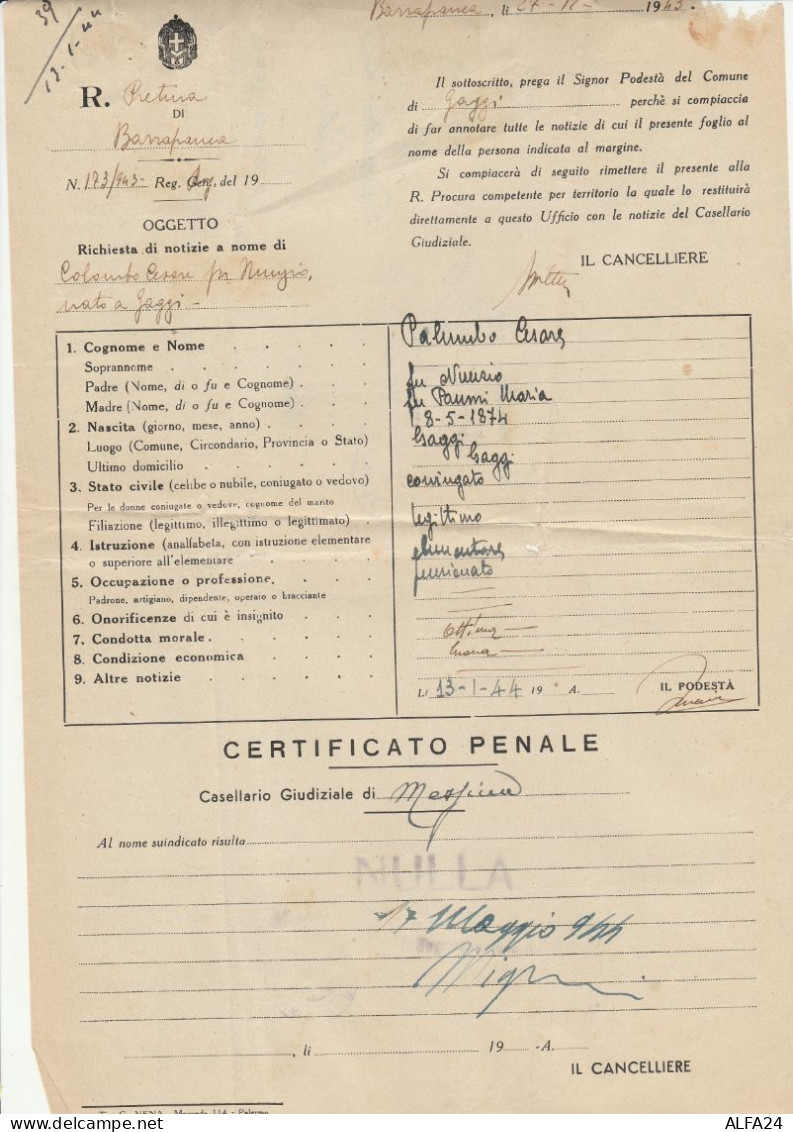 39
13-1-44
Barrafranca, li 27-12- 1943.
R. Pretura
DI
Barrafranca
N. 173/943- Reg. Gen. del 19
OGGETTO
Richiesta di notizie a nome di
Colombo Cesare fu Nunzio,
nato a Gaggi -
Il sottoscritto, prega il Signor Podestà del Comune
di Gaggi perchè si compiaccia
di far annotare tutte le notizie di cui il presente foglio al
nome della persona indicata al margine.
Si compiacerà di seguito rimettere il presente alla
R. Procura competente per territorio la quale lo restituirà
direttamente a questo Ufficio con le notizie del Casellario
Giudiziale.
IL CANCELLIERE
1. Cognome e Nome Palumbo Cesare
Soprannome
Padre (Nome, di o fu e Cognome) fu Nunzio
Madre (Nome, di o fu e Cognome) fu Maria
2. Nascita (giorno, mese, anno) 8-5-1874
Luogo (Comune, Circondario, Provincia o Stato) Gaggi
Ultimo domicilio Gaggi
3. Stato civile (celibe o nubile, coniugato o vedovo) coniugato
Per le donne coniugate o vedove, cognome del marito
Filiazione (legittimo, illegittimo o legittimato) legittimo
4. Istruzione (analfabeta, con istruzione elementare
o superiore all'elementare elementare
5. Occupazione o professione, pensionato
Padrone, artigiano, dipendente, operaio o bracciante
6. Onorificenze di cui è insignito
7. Condotta morale ottima
8. Condizione economica buona
9. Altre notizie
Li 13-1-44 19 A. IL PODESTÀ
CERTIFICATO PENALE
Casellario Giudiziale di Messina
Al nome suindicato risulta
NULLA
17 Maggio 944
, li 19 -A.
IL CANCELLIERE
Palermo
ALFA24